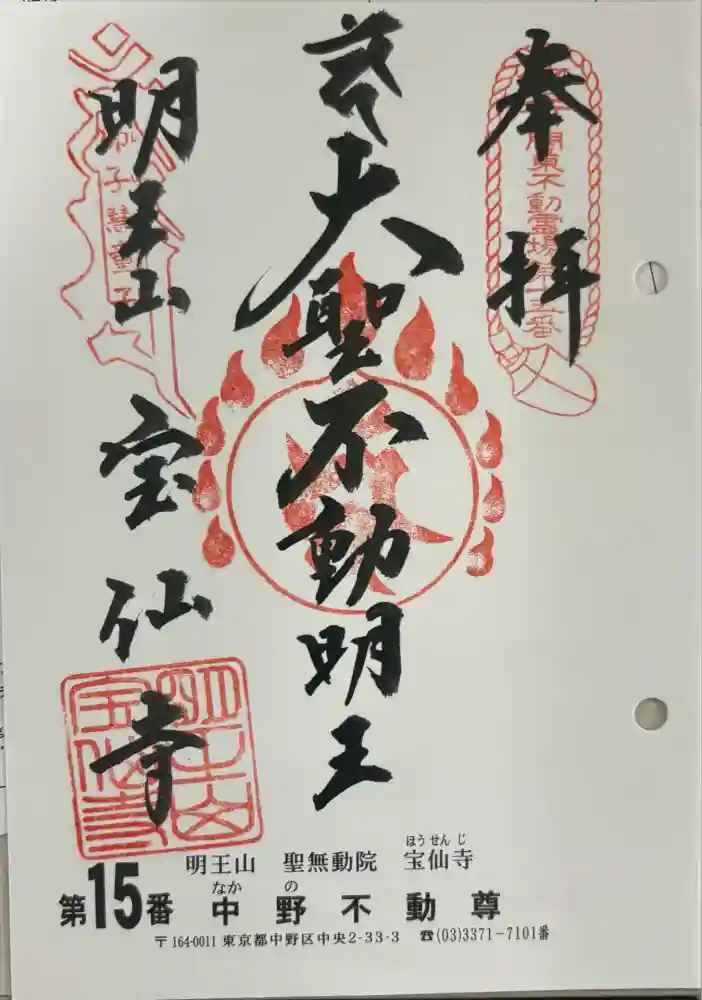 奉拝
関東不動霊場第十五番
大聖不動明王
明王山
宝仙寺
明王山
宝仙寺
ほうせんじ
明王山 聖無動院 宝仙寺
なか の
第15番 中野不動尊
〒164-0011 東京都中野区中央2-33-3 ☎(03)3371-7101番